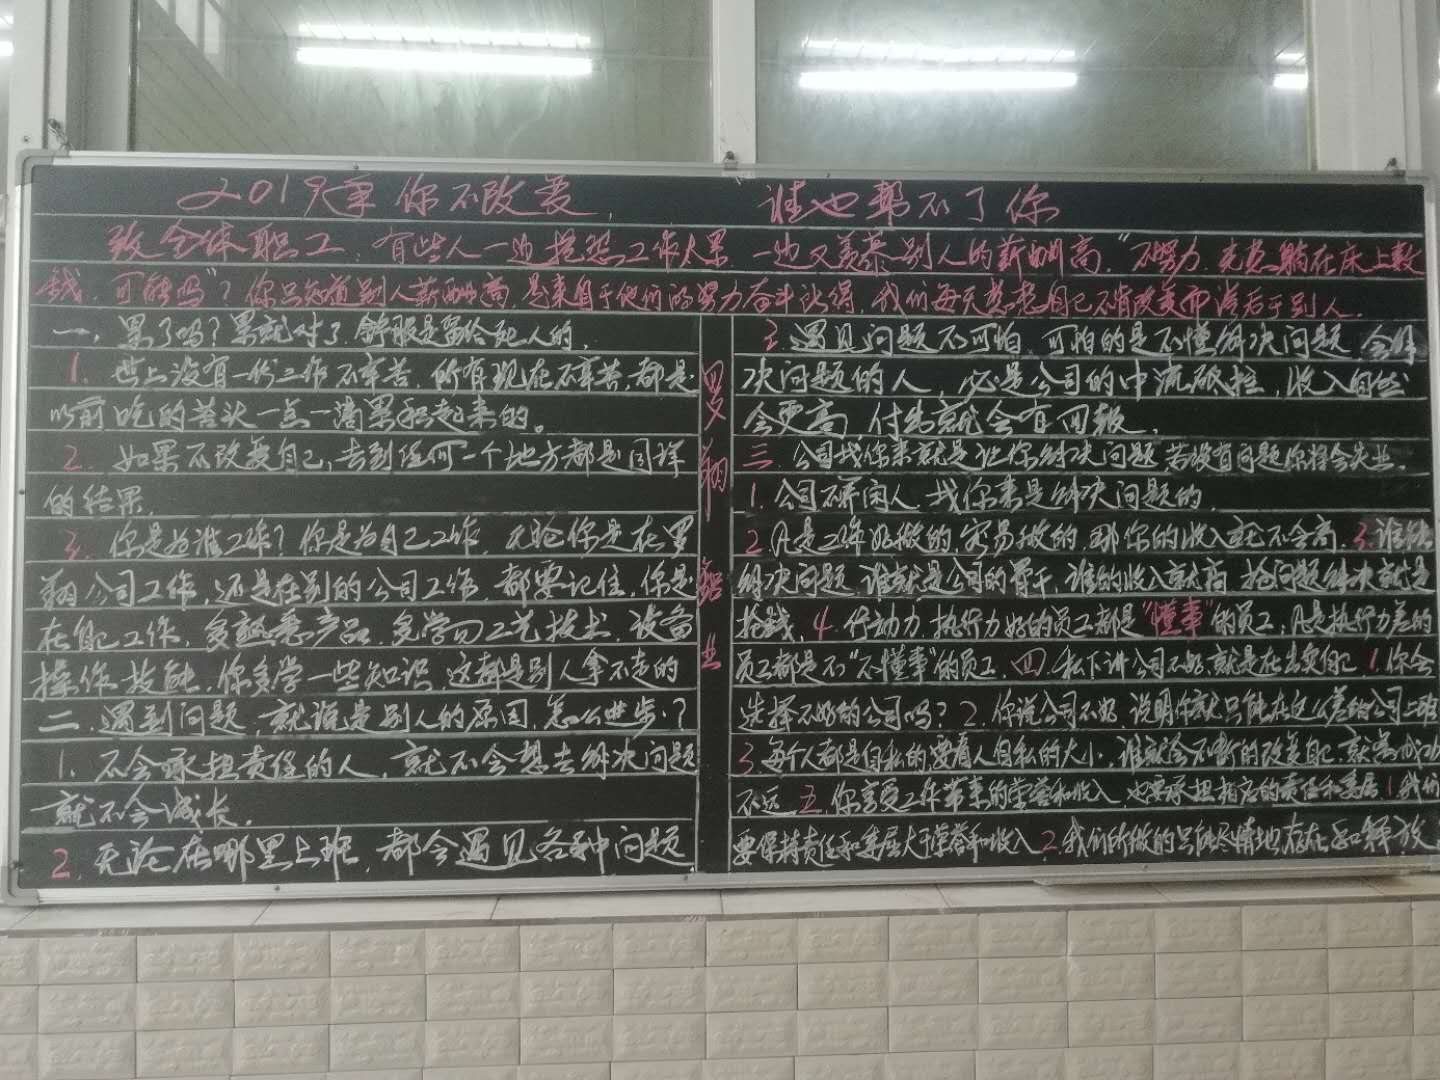 2019年 你不改变, 谁也帮不了你
致全体职工: 有些人一边抱怨工作太累 一边又羡慕别人的薪酬高, "不努力, 光想躺在床上数
钱, 可能吗"? 你只知道别人薪酬高, 是来自于他们的努力奋斗所得, 我们每天想着自己不肯改变而落后于别人.
一, 累了吗? 累就对了, 舒服是留给死人的,
1. 世上没有一份工作不辛苦, 所有现在不辛苦, 都是
以前吃的苦头一点一滴累积起来的。
2. 如果不改变自己, 去到任何一个地方都是同样
的结果,
3. 你是为谁工作? 你是为自己工作, 无论你是在罗
翔公司工作, 还是在别的公司工作, 都要记住, 你是
在自己工作, 多熟悉产品, 多学习工艺技术, 设备
操作技能, 你多学一些知识, 这都是别人拿不走的
二. 遇到问题, 就说是别人的原因, 怎么进步?
1. 不会承担责任的人, 就不会想去解决问题
就不会成长,
2. 无论在哪里上班, 都会遇见各种问题
罗翔铝业
3. 遇见问题不可怕, 可怕的是不懂解决问题, 会解
决问题的人, 必是公司的中流砥柱, 收入自然
会更高, 付出就会有回报,
三. 公司找你来就是让你解决问题, 若没有问题你将会失业,
1. 公司不养闲人, 找你来是解决问题的,
2. 凡是工作好做的, 容易做的, 那你的收入就不会高, 3. 谁能
解决问题, 谁就是公司的骨干, 谁的收入就高, 抢问题解决就是
抢钱, 4. 行动力, 执行力好的员工都是"懂事"的员工, 凡是执行力差的
员工都是不"不懂事"的员工. 四. 私下讲公司不好, 就是在出卖自己 1. 你会
选择不好的公司吗? 2. 你说公司不好, 说明你就只能在这么差的公司上班
3. 每个人都是自私的, 要看人自私的大小, 谁就会不断的改变自己, 就离成功
不远 五. 你享受工作带来的荣誉和收入, 也要承担相应的责任和委屈 1. 我们
要保持责任和委屈大于荣誉和收入 2. 我们所做的只能尽情地存在和释放